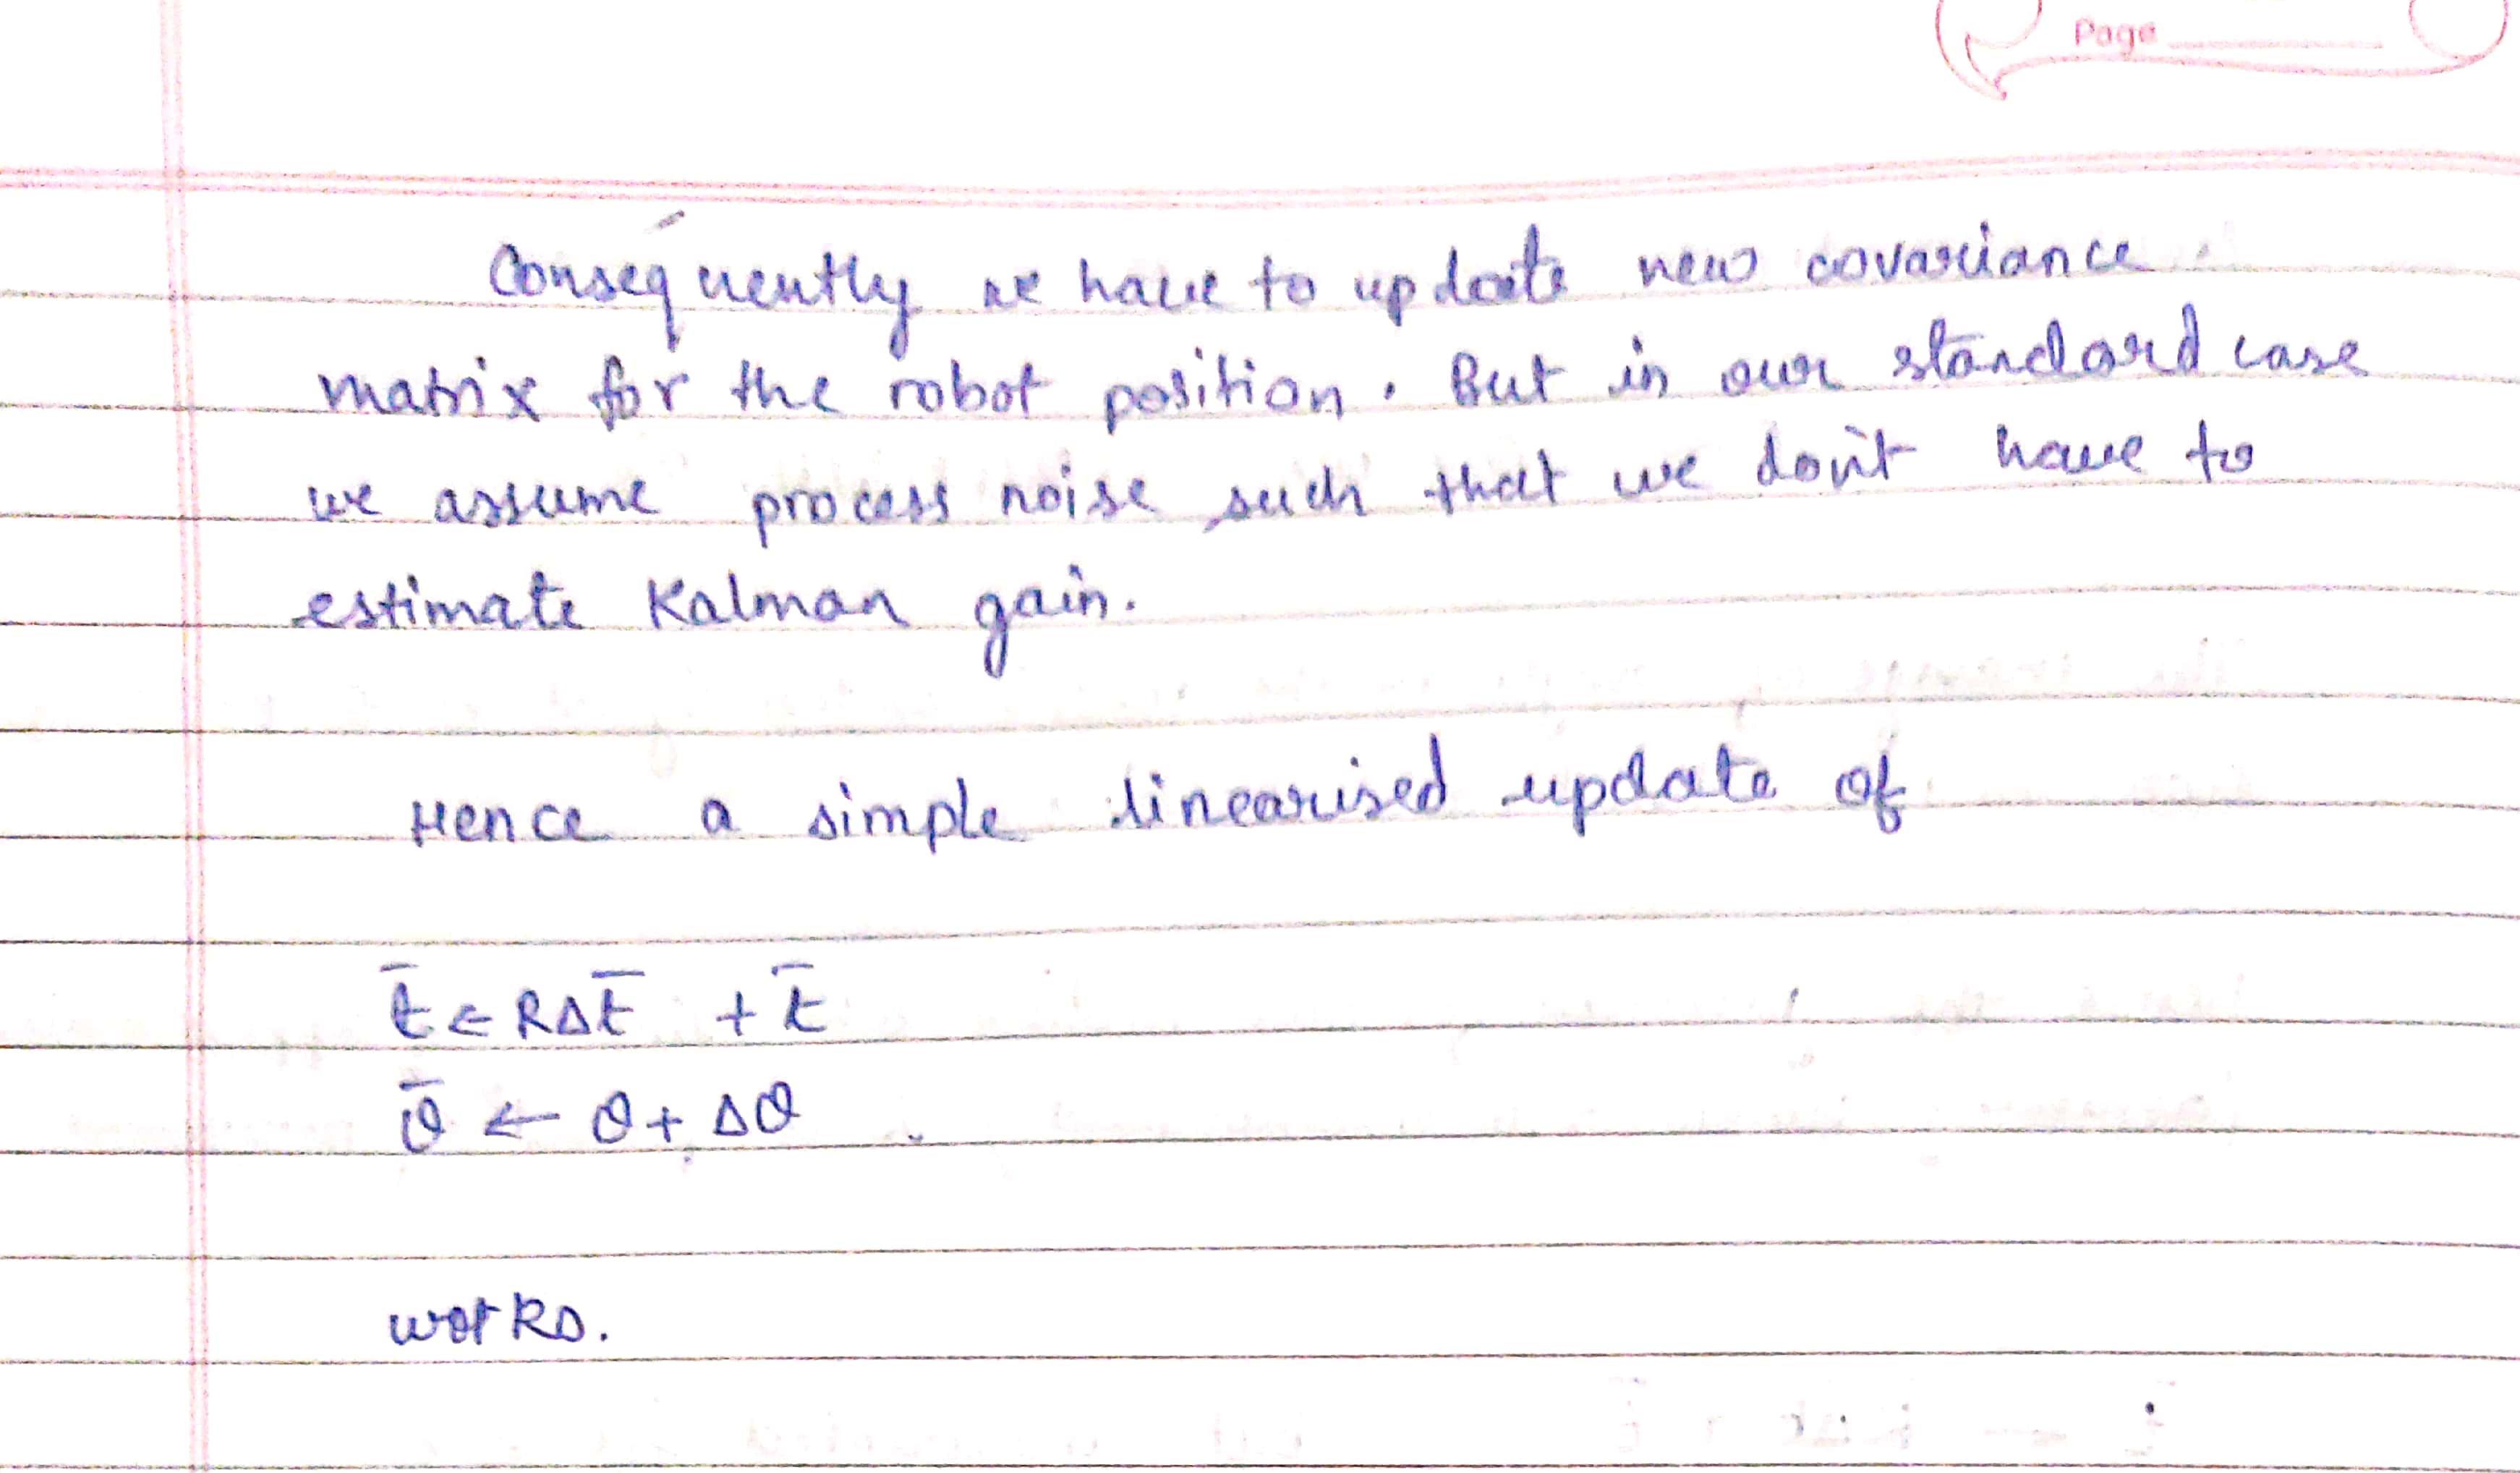 Page
Consequently we have to update new covariance
matrix for the robot position. But in our standard case
we assume process noise such that we don't have to
estimate Kalman gain.
Hence a simple linearised update of
t̄ ← RΔt̄ + t̄
θ̄ ← θ + Δθ
works.